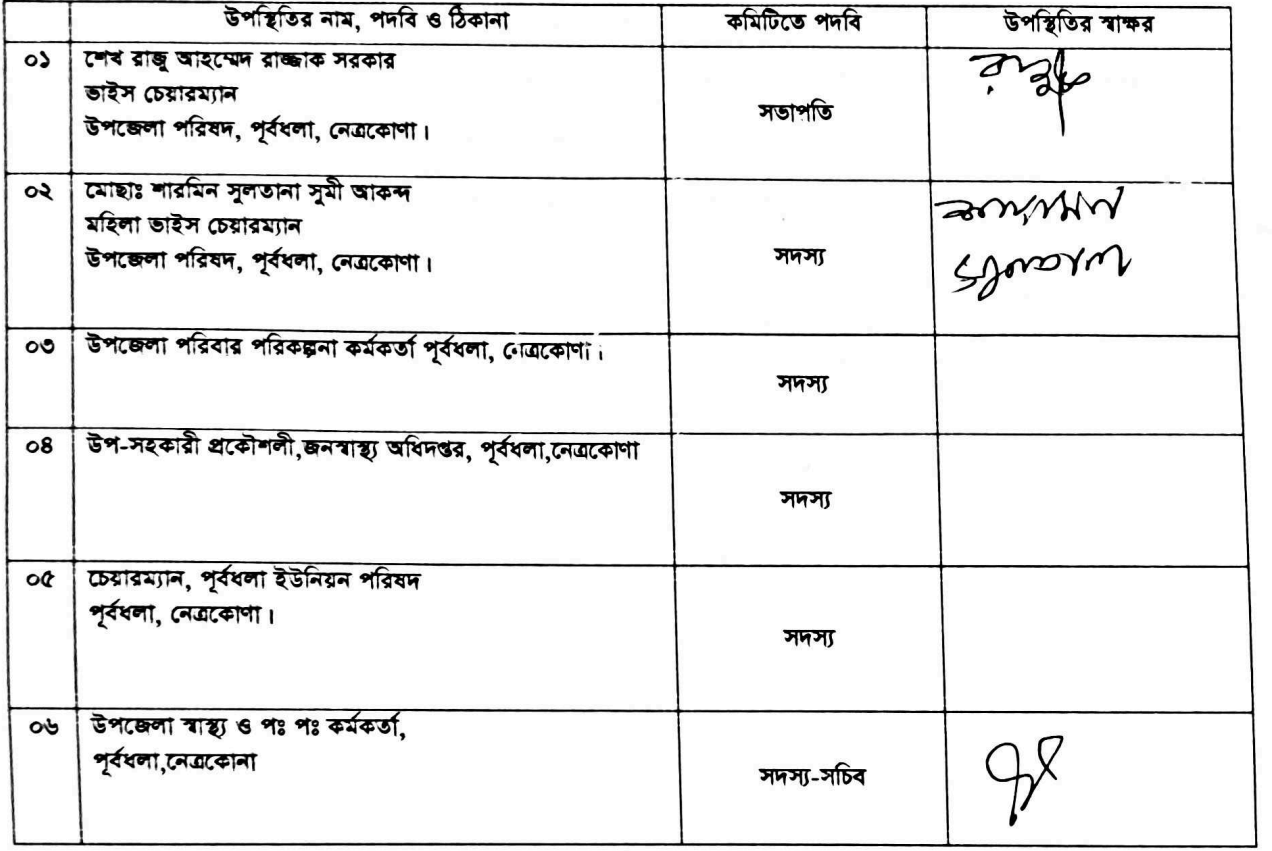 উপস্থিতির নাম, পদবি ও ঠিকানা কমিটিতে পদবি উপস্থিতির স্বাক্ষর
০১ শেখ রাজু আহম্মেদ রাজ্জাক সরকার
ভাইস চেয়ারম্যান
উপজেলা পরিষদ, পূর্বধলা, নেত্রকোণা।
সভাপতি
০২ মোছাঃ শারমিন সুলতানা সুমী আকন্দ
মহিলা ভাইস চেয়ারম্যান
উপজেলা পরিষদ, পূর্বধলা, নেত্রকোণা।
সদস্য
০৩ উপজেলা পরিবার পরিকল্পনা কর্মকর্তা পূর্বধলা, নেত্রকোণা।
সদস্য
০৪ উপ-সহকারী প্রকৌশলী,জনস্বাস্থ্য অধিদপ্তর, পূর্বধলা,নেত্রকোণা
সদস্য
০৫ চেয়ারম্যান, পূর্বধলা ইউনিয়ন পরিষদ
পূর্বধলা, নেত্রকোণা।
সদস্য
০৬ উপজেলা স্বাস্থ্য ও পঃ পঃ কর্মকর্তা,
পূর্বধলা,নেত্রকোনা
সদস্য-সচিব